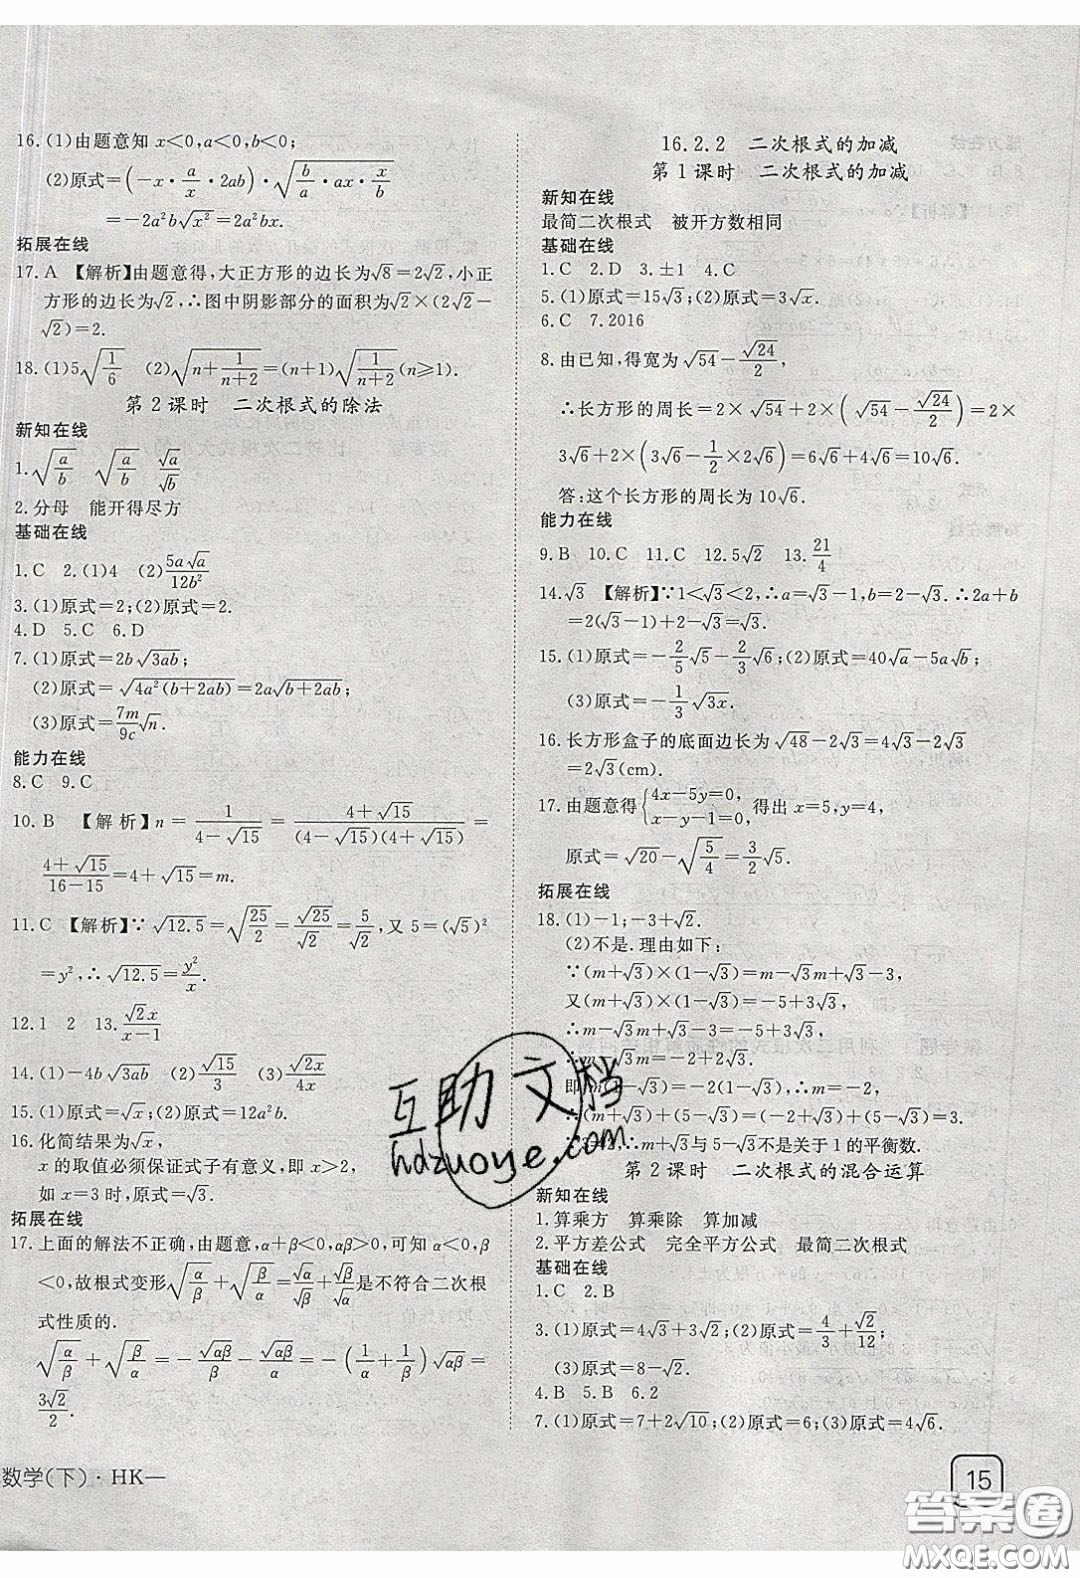 16.(1)由题意知 x<0,a<0,b<0;
(2)原式=(-x·a/x·2ab)·√(b/a·ax·x/b)
=-2a²b√x²=2a²bx.
拓展在线
17.A 【解析】由题意得,大正方形的边长为√8=2√2,小正
方形的边长为√2,∴图中阴影部分的面积为√2×(2√2-
√2)=2.
18.(1)5√(1/6) (2)√(n+1/(n+2))=(n+1)√(1/(n+2))(n≥1).
第2课时 二次根式的除法
新知在线
1.√(a/b) √(a/b) √a/√b
2.分母 能开得尽方
基础在线
1.C 2.(1)4 (2)5a√a/12b²
3.(1)原式=2;(2)原式=2.
4.D 5.C 6.D
7.(1)原式=2b√(3ab);
(2)原式=√(4a²(b+2ab))=2a√(b+2ab);
(3)原式=7m/9c√n.
能力在线
8.C 9.C
10.B 【解析】n=1/(4-√15)=(4+√15)/((4-√15)(4+√15))=
(4+√15)/(16-15)=4+√15=m.
11.C 【解析】∵√12.5=√(25/2)=√25/√2=5/√2,又 5=(√5)²
=y²,∴√12.5=y²/x.
12.1 2 13.√(2x)/(x-1)
14.(1)-4b√(3ab) (2)√15/3 (3)√(30x)/4x
15.(1)原式=√x;(2)原式=12a²b.
16.化简结果为√x,
x 的取值必须保证式子有意义,即 x>2,
如 x=3 时,原式=√3.
拓展在线
17.上面的解法不正确,由题意,α+β<0,αβ>0,可知 α<0,β
<0,故根式变形√(α/β)+√(β/α)=√α/√β+√β/√α是不符合二次根
式性质的.
√(α/β)+√(β/α)=-√(αβ)/β-√(αβ)/α=-(1/α+1/β)√(αβ)=
3√2/2.
数学(下)·HK—
16.2.2 二次根式的加减
第1课时 二次根式的加减
新知在线
最简二次根式 被开方数相同
基础在线
1.C 2.D 3.±1 4.C
5.(1)原式=15√3;(2)原式=3√x.
6.C 7.2016
8.由已知,得宽为√54-√24/2,
∴长方形的周长=2×√54+2×(√54-√24/2)=2×
3√6+2×(3√6-1/2×2√6)=6√6+4√6=10√6.
答:这个长方形的周长为 10√6.
能力在线
9.B 10.C 11.C 12.5√2 13.21/4
14.√3 【解析】∵1<√3<2,∴a=√3-1,b=2-√3.∴2a+b
=2(√3-1)+2-√3=√3.
15.(1)原式=-2/5√5-2/3√6;(2)原式=40√a-5a√b;
(3)原式=-1/3√(3x).
16.长方形盒子的底面边长为√48-2√3=4√3-2√3=
2√3(cm).
17.由题意得{4x-5y=0, x-y-1=0,得出 x=5,y=4,
原式=√20-√(5/4)=3/2√5.
拓展在线
18.(1)-1;-3+√2.
(2)不是.理由如下:
∵(m+√3)×(1-√3)=m-√3m+√3-3,
又(m+√3)×(1-√3)=-5+3√3,
∴m-√3m+√3-3=-5+3√3,
∴m-√3m=-2+2√3.
即 m(1-√3)=-2(1-√3),∴m=-2.
∴(m+√3)+(5-√3)=(-2+√3)+(5-√3)=3.
∵3≠2,∴m+√3与 5-√3不是关于 1 的平衡数.
第2课时 二次根式的混合运算
新知在线
1.算乘方 算乘除 算加减
2.平方差公式 完全平方公式 最简二次根式
基础在线
1.C 2.B
3.(1)原式=4√3+3√2;(2)原式=4/3+√2/12;
(3)原式=8-√3.
4.B 5.B 6.2
7.(1)原式=7+2√10;(2)原式=6;(3)原式=4√6.
15
互助文档
hdzuoye.com
答案圈
MXQE.COM